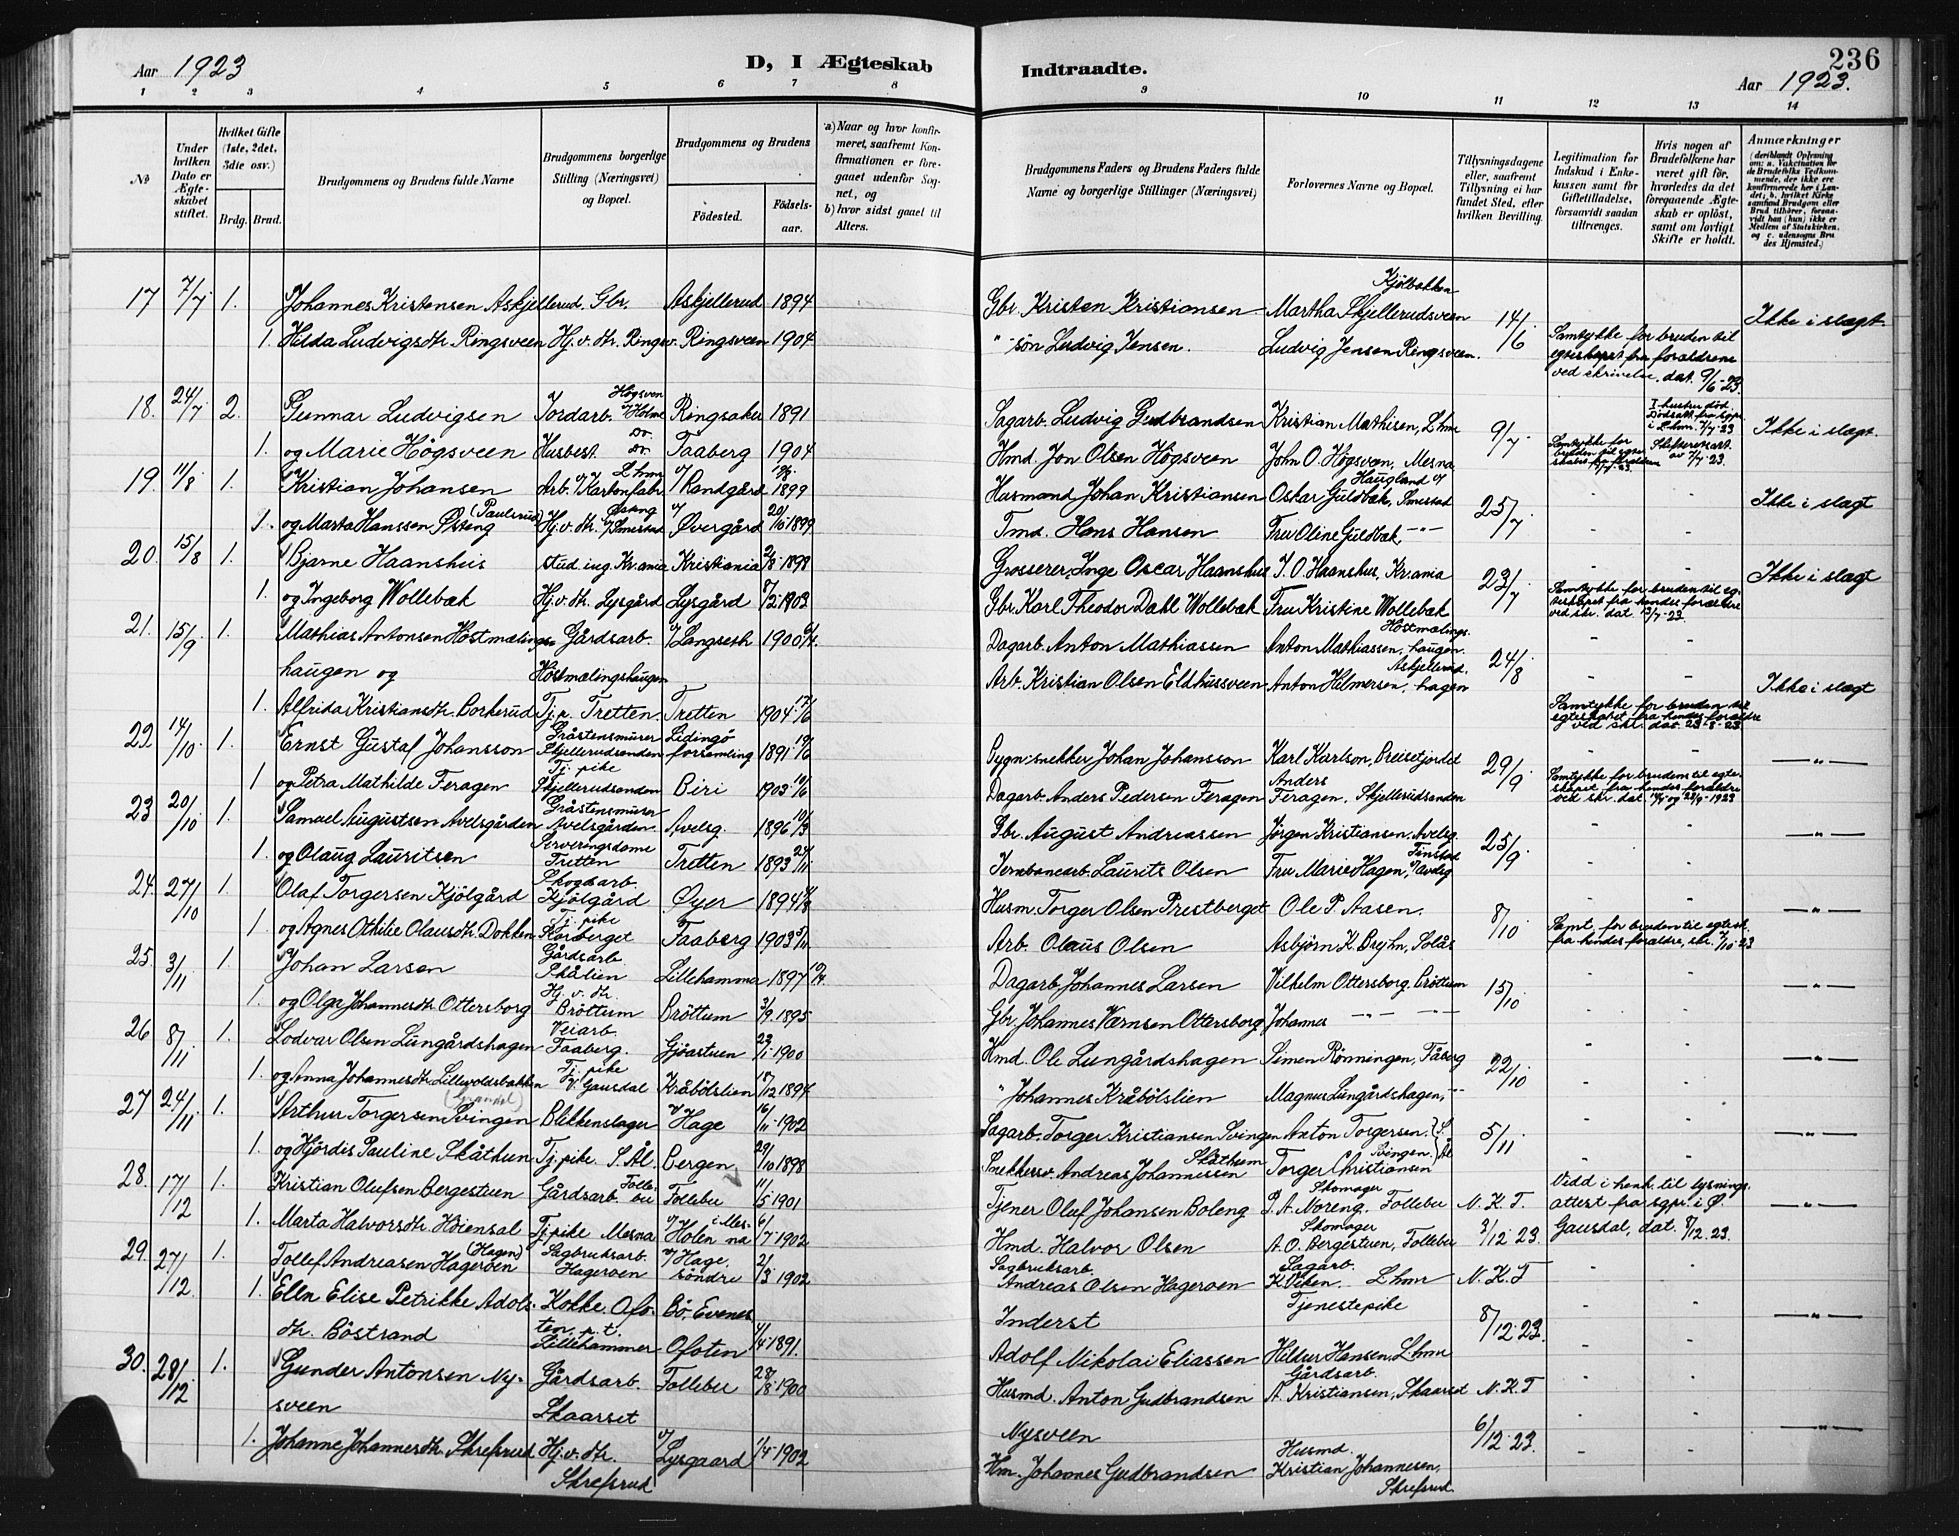 236
Aar 1923
D, I Ægteskab
Indtraadte.
Aar 1923.
1 2 3 4 5 6 7 8 9 10 11 12 13 14
No
Under hvilken Dato er Ægteskabet stiftet.
Hvilket Gifte (1ste, 2det, 3die osv.)
Brdg. Brud.
Brudgommens og Brudens fulde Navne
Brudgommens borgerlige Stilling (Næringsvei) og Bopæl.
Brudgommens og Brudens
Fødested.
Fødselsaar.
a) Naar og hvor konfirmeret, saafremt Konfirmationen er foregaaet udenfor Sognet, og
b) hvor sidst gaaet til Alters.
Brudgommens Faders og Brudens Faders fulde Navne og borgerlige Stillinger (Næringsvei)
Forlovernes Navne og Bopæl.
Tillysningsdagene eller, saafremt Tillysning ei har fundet Sted, efter hvilken Bevilling.
Legitimation for Indskud i Enkekassen samt for Giftetilladelse, forsaavidt saadan tiltrænges.
Hvis nogen af Brudefolkene har været gift før, hvorledes da det foregaaende Ægteskab er opløst, samt om lovligt Skifte er holdt.
Anmærkninger
(deriblandt Oplysning om: a. Vaccination for de Brudefolks Vedkommende, der ikke ere konfirmerede her i Landet; b. hvilket Kirkesamfund Brudgom eller Brud tilhører, forsaavidt han (hun) ikke er Medlem af Statskirken, og c. udensogns Brudes Hjemsted.)
17 7/7 1. Johannes Kristensen Askjellerud. Gbr. Askjellerud 1894 Gbr. Kristen Kristiansen Martha Skjellerudsveen Kjølbakken 14/6 Ikke i slægt.
1. Hilda Ludvigsdtr. Ringsveen Hj.v. dtr. Ringsv. Ringsveen 1904 "-søn Ludvig Jensen. Ludvig Jensen Ringsveen. Samtykke for bruden til egteskapet fra forældrene ved skrivelse, dat. 9/6-23.
18. 24/7 2. Gunnar Ludvigsen Jordarb. Högsveen v/Holme Ringsaker 1891 Sagarb. Ludvig Gudbrandsen Kristian Mathisen, L.hmr 9/7 I hustru død Dødsatt. fra sgpr. i L.hmr. 7/7-23 Ikke i slægt.
1. og Marie Högsveen Husbest. Do. Do. Faaberg 1904 Hmd. Jon Olsen Högsveen John O. Högsveen, Mesna Samtykke for bruden til egteskabet fra forældren Skifteattest av 7/7-23.
19. 11/8 1. Kristian Johansen Arb. v/Kartonfabr. L.hmr v/Randgård 1899 Husmand Johan Kristiansen Oskar Guldbak, Smestad Haugland v/ 25/7 Ikke i slægt
1. og Marta Hanssen Østeng (Paulsrud) Hj.v. dtr. v/Smestad Øvergård 20/10-1899 Tmd. Hans Hansen Fru Oline Guldbak, -"-
20. 15/8 1. Bjarne Haanshus stud. ing. Kr.ania Kristiania 2/8-1898 Grosserer Inge Oscar Haanshus I. O. Haanshus, Kr.ania 23/7 Ikke i slægt
1. og Ingeborg Wollebæk Hj.v. dtr. Lysgård Lysgård 8/2-1903 Gbr. Karl Theodor Dahl Wollebæk Fru Kristine Wollebæk Samtykke for bruden til egteskapet fra hendes forældre ved skr. dat. 13/7-23.
21. 15/9 1. Mathias Antonsen Höstmælingshaugen og Gårdsarb. Höstmælingshaugen v/Langseth 1900 6/4. Dagarb. Anton Mathiassen Anton Mathiassen, Höstmælingshaugen. 24/8 Ikke i slægt
1. Alfrida Kristiansdtr. Borkerud Tj. p. Tretten. Tretten 1904 17/6 Arb. Kristian Olsen Eldhussveen Anton Hilmersen, Askjellerudhagen Samtykke for bruden til egteskapet fra hendes forældre ved skr. dat. 23-8-23.
22 14/10 1. Ernst Gustaf Johansson Gråstensmurer Skjellerudsanden Lidingö forsamling 1891 19/6 Bygn.snekker Johan Johansson Karl Karlson, Breisetjordet 29/9 -"-
1 og Petra Mathilde Feragen Tj. pike Skjellerudsanden Biri 1903 10/6 Dagarb. Anders Pedersen Feragen Anders Feragen, Skjellerudsanden Samtykke for bruden til egteskapet fra hendes forældre ved skr. dat.
23 20/10 1. Samuel Augustsen Avelsgården Gråstensmurer Avelsgården Avelsg. 1896 10/3 Gbr. August Andreassen Jørgen Kristiansen. Avelsg. 25/9 -"-
1. og Olaug Lauritsen Serveringsdame Tretten Tretten 1893 23/11 Jernbanearb. Laurits Olsen Fru Marie Hagen, Finstad v/Avelsg
24. 27/10 1. Olaf Torgersen Kjölgård Skogsarb. Kjölgård Øyer 1894 Husm. Torger Olsen Prestberget Ole P. Aasen. 8/10 -"-
1. og Agnes Othilie Olausdtr. Dokken Tj. pike Storberget Faaberg 1903 5/11 Arb. Olaus Olsen Asbjørn K. Bryhn, Solås Samt. for bruden til egtesk. fra hendes forældre, skr. 7/10-23
25. 3/11 1. Johan Larsen Gårdsarb Skålien Lillehammer 1897 Dagarb. Johannes Larsen Vilhelm Ottersborg. Bröttum 15/10 -"-
1. og Olga Johannesdtr. Ottersborg Hj. v. dtr. Bröttum Bröttum 3/9. 1895 Gbr. Johannes Værnsen Ottersborg Johannes -"- -"-
26 8/11 1. Lodvar Olsen Lungårdshagen Veiarb. Faaberg. Gjøastuen 23/1-1900 Hmd. Ole Lungårdshagen Simen Rønningen, Fåberg 22/10 -"-
1. og Anna Johannesdtr. Lillevoldsbakken Tj. pike V. Gausdal Kråbölslien 18/12 1894 " Johannes Kråbölslien Magnus Lungårdshagen, -"-
27 24/11 1. Arthur Torgersen Svingen Blikkenslager v/Hage 16/11-1902 Sagarb. Torger Kristiansen Svingen Anton Torgersen. 5/11 -"-
1. og Hjördis Pauline Skåthun Tj. pike. S. Ål. Bergen 29/10 1898 Snekkersv. Andreas Johannessen Skåthum Torger Christiansen Svingen.
28. 17/12 1. Kristian Olufsen Bergestuen Gårdsarb. Follebu Follebu 11/5 1901 Tjener Oluf Johansen Boleng P. A. Noreng, Skomager Follebu N. K. T. 3/12 23. Vidd i henh. til lysningsattest fra sgpr. i Ø. Gausdal, dat. 3/12. 23. -"-
1. Marta Halvorsdtr. Höiensal Tj. pike Mesna v/Holen i Mesna 6/7-1902 Hmd. Halvor Olsen A. O. Bergestuen, Skomager Follebu
29. 27/12 1. Tollef Andreasen Hageroen (Hagen) Sagbruksarb. Hageroen v/Hage, søndre 2/3 1902 Sagbruksarb. Andreas Olsen Hageroen Sagarb. L.hmr N. K. T 8/12 23.
1. Elln Elise Petrikke Adolfdtr. Böstrand Kokke Ofoten, p. t. Lillehammer Bö, Evenes Ofoten 4/4 1891. Inderst Adolf Nikolai Eliassen Tjenestepike Hildur Hansen L.hmr -"-
30. 28/12 1. Gunder Antonsen Nysveen Gårdsarb. Skaarset Follebu 28/8-1900 Husmd. Anton Gudbrandsen Nysveen Gårdsarb. A. Kristiansen, Skaarset N. K. T 6/12 23. -"-
1. Johanne Johannesdtr. Skrefsrud Hj. v. dtr. Skrefsrud v/Lysgaard 1/4-1902 Hm. Johannes Gudbrandsen Husmd. Kristian Johannesen, Skrefsrud